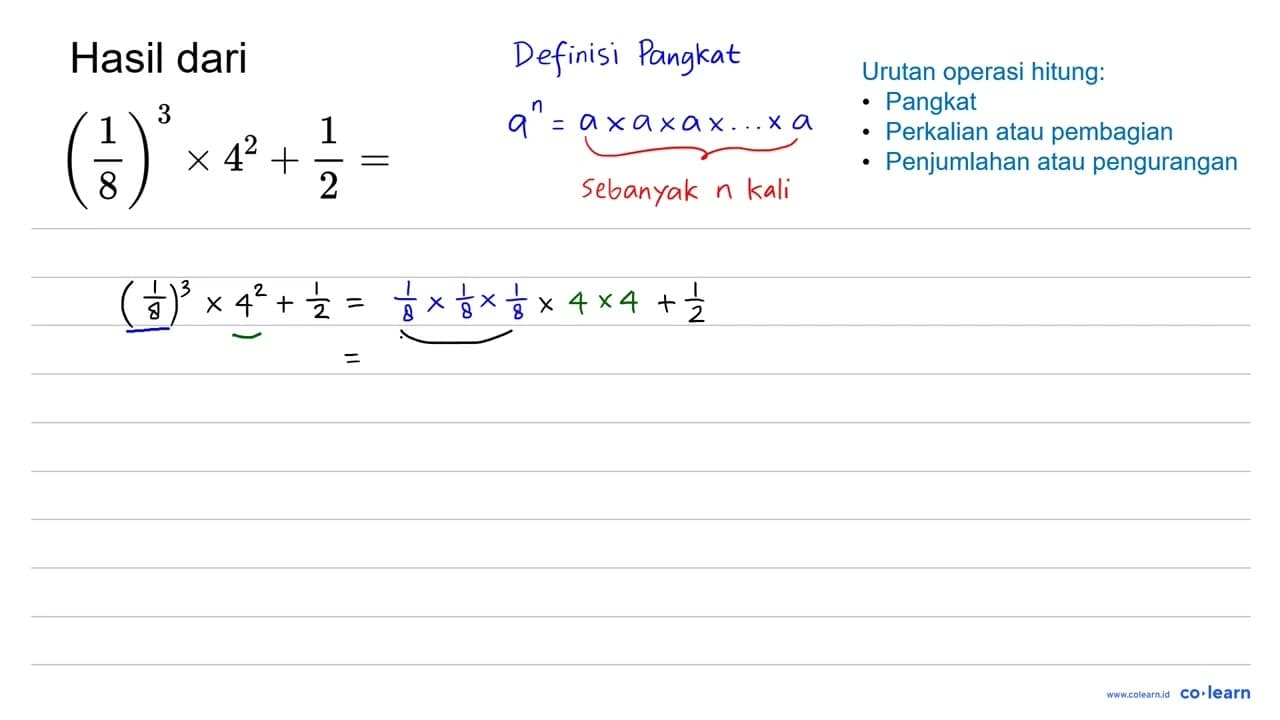 Hasil dari
(1/8)^3 × 4^2 + 1/2 =
Definisi Pangkat
a^n = a × a × a × ... × a
sebanyak n kali
Urutan operasi hitung:
• Pangkat
• Perkalian atau pembagian
• Penjumlahan atau pengurangan
(1/8)^3 × 4^2 + 1/2 = 1/8 × 1/8 × 1/8 × 4 × 4 + 1/2
=
www.colearn.id co·learn